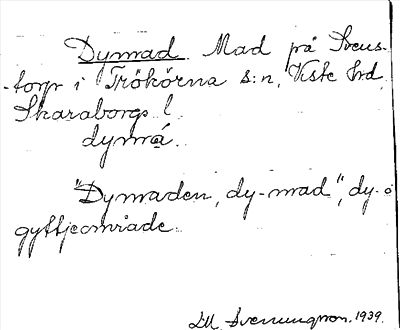 Dymad. Mad på Svens-
torp i Trökörna s:n, Viste hrd,
Skaraborgs l.
dymá.
"Dymaden, dy-mad", dy- o
gyttjeområde.
Sverungson. 1939.